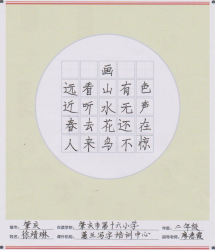 画
远看山有色
近听水无声
春去花还在
人来鸟不惊
肇庆 肇庆市第十六小学 二年级
徐靖琳 萧卫写字培训中心